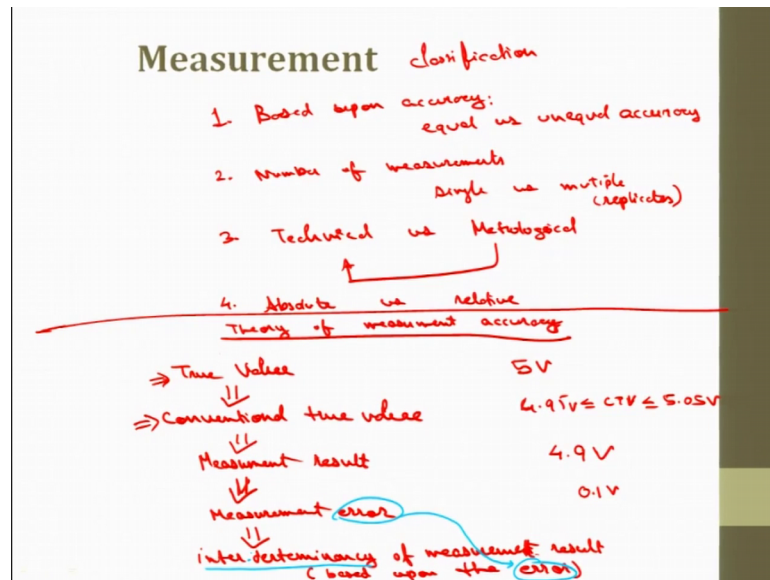 Measurement classification
1. Based upon accuracy:
equal vs unequal accuracy
2. Number of measurements
single vs mutiple
(replicates)
3. Technical vs Metrological
4. Absolute vs relative
Theory of measurement accuracy
⇒ True Value 5V
⇓
⇒ Conventional true value 4.95V ≤ CTV ≤ 5.05V
⇓
Measurment result 4.9V
⇓
Measurment error 0.1V
⇓
inter.determinancy of measurement result
(based upon the error)